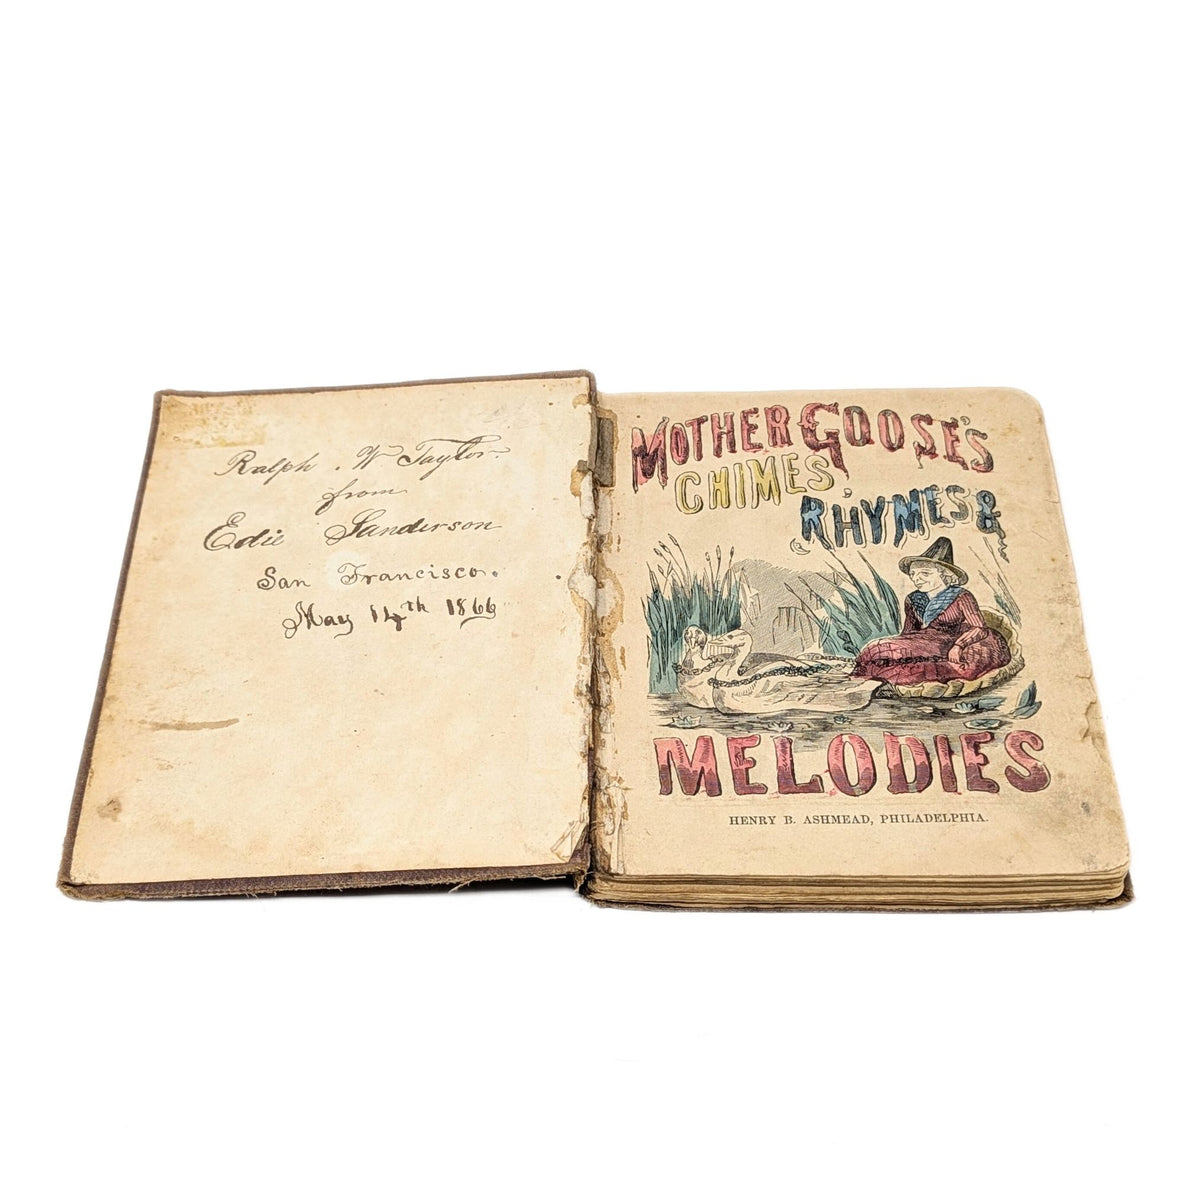 Ralph. W Taylor.
from
Edie Sanderson
San Francisco.
May 14th 1866
MOTHER GOOSE'S
CHIMES,
RHYMES &
MELODIES
HENRY B. ASHMEAD, PHILADELPHIA.